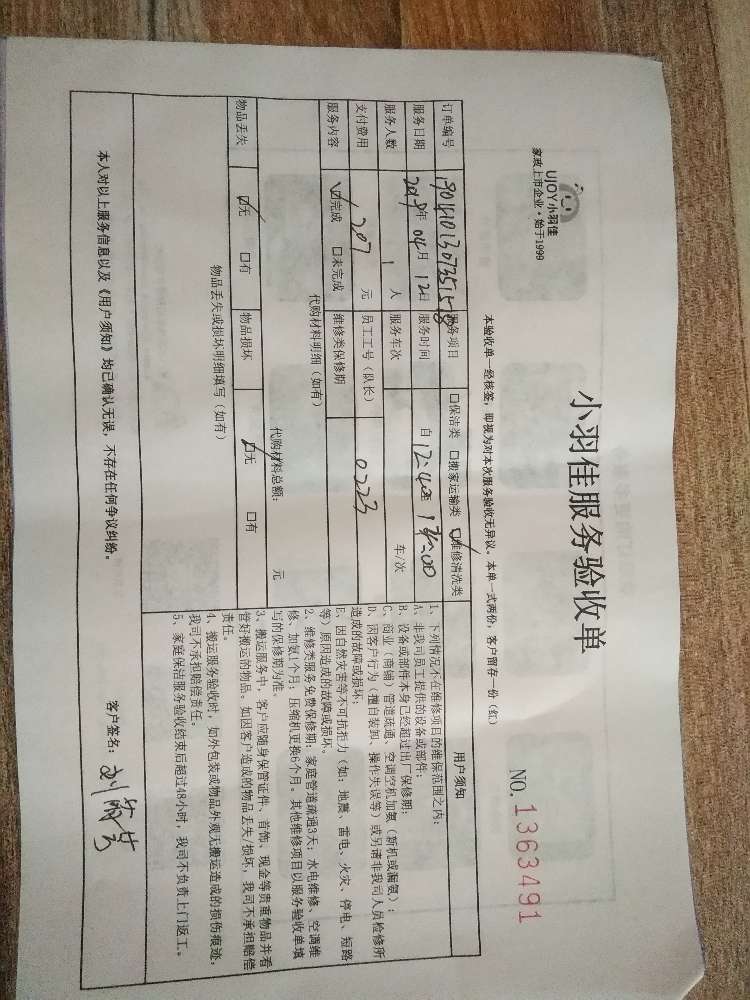 UJOY小羽佳
家政上市企业·始于1999
小羽佳服务验收单
NO. 1363491
本验收单一经核签，即视为对本次服务验收无异议。本单一式两份，客户留存一份（红）
订单编号 服务项目 □保洁类 □搬家运输类 ☑维修清洗类
服务日期 2019年04月12日 服务时间 自12:40至
服务人数 1人 服务车次 车/次
支付费用 207元 员工工号（队长） 0223
服务内容 ☑完成 □未完成 维修类保修期
代购材料明细（如有）
代购材料总额： 元
物品丢失 ☑无 □有 物品损坏 ☑无 □有
物品丢失或损坏明细填写（如有）
用户须知
1、下列情况不在维修项目的维保范围之内：
A、非我司员工提供的设备或部件；
B、设备或部件本身已经超过出厂保修期；
C、商业（商铺）管道疏通、空调空机加氨（新机或漏氨）；
D、因客户行为（擅自装卸、操作失误等）或另请非我司人员检修所
造成的故障或损坏；
E、因自然灾害等不可抗拒力（如：地震、雷电、火灾、停电、短路
等）原因造成的故障或损坏。
2、维修类服务免费保修期：家庭管道疏通3天；水电维修、空调维
修、加氨1个月；压缩机更换6个月。其他维修项目以服务验收单填
写的保修期为准。
3、搬运服务中，客户应随身保管证件、首饰、现金等贵重物品并看
管好搬运的物品。如因客户造成的物品丢失/损坏，我司不承担赔偿
责任。
4、搬运服务验收时，如外包装或物品外观无搬运造成的损伤痕迹，
我司不承担赔偿责任。
5、家庭保洁服务验收结束后超过48小时，我司不负责上门返工。
本人对以上服务信息以及《用户须知》均已确认无误，不存在任何争议纠纷。
客户签名：